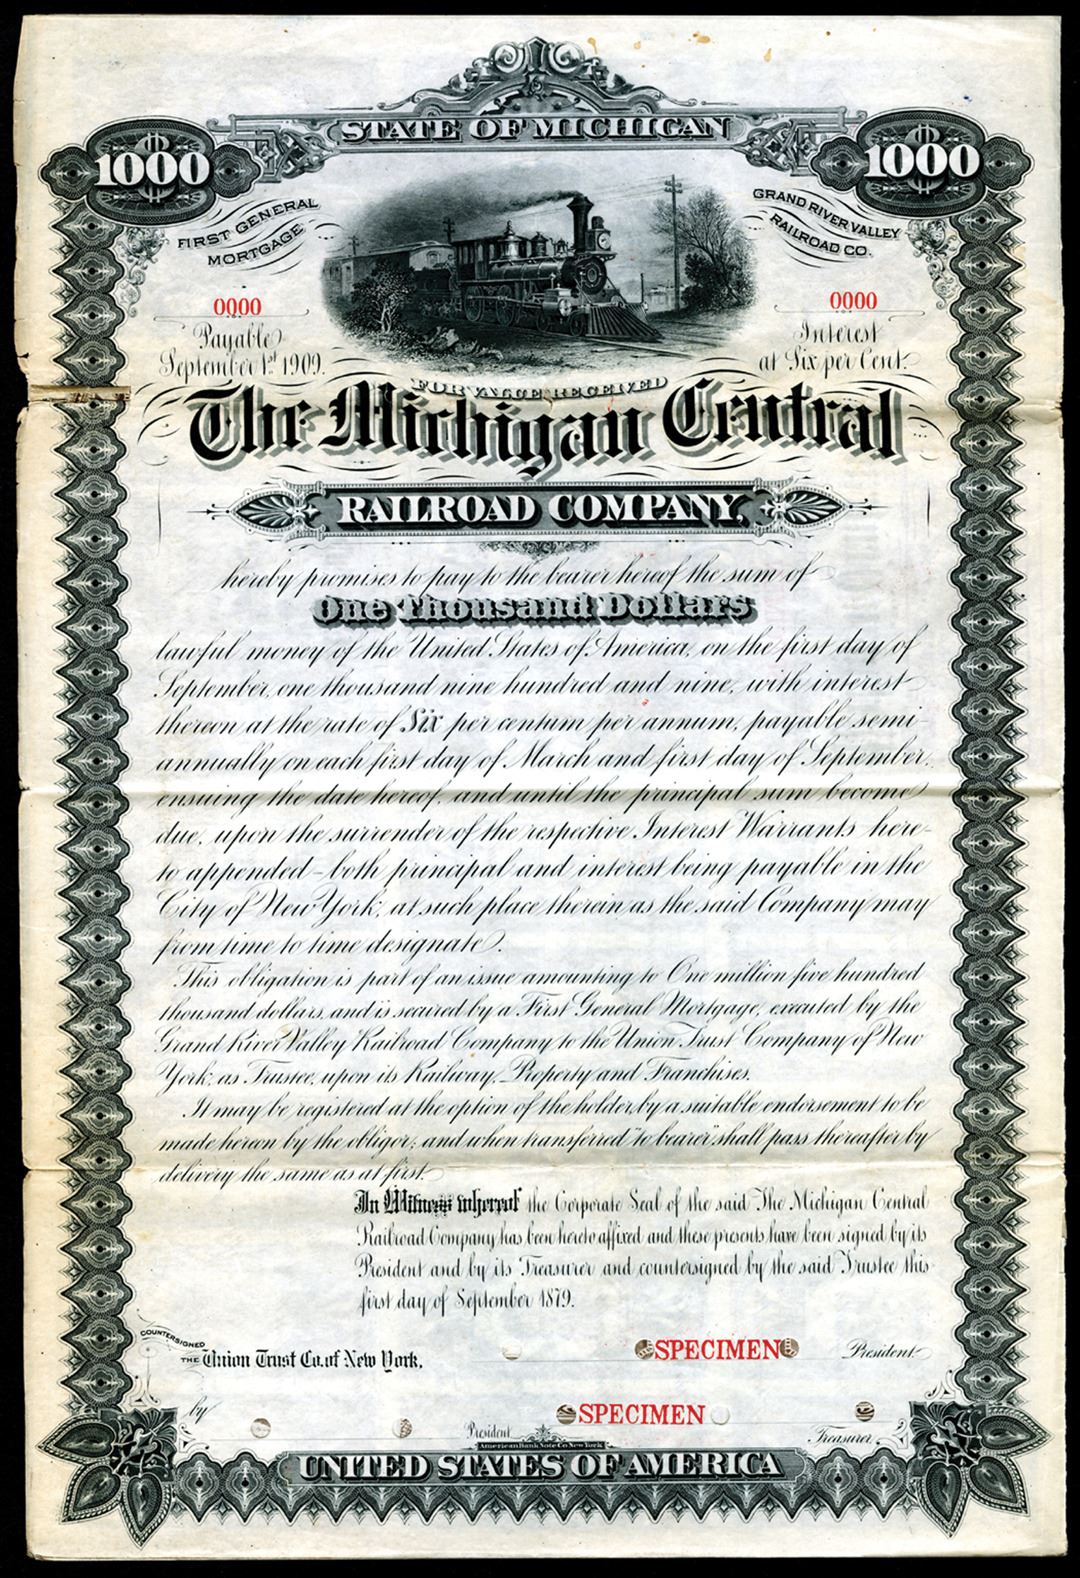 STATE OF MICHIGAN
1000
1000
FIRST GENERAL
MORTGAGE
GRAND RIVER VALLEY
RAILROAD CO.
0000
0000
Payable
September 1st 1909.
Interest
at Six per Cent.
FOR VALUE RECEIVED
The Michigan Central
RAILROAD COMPANY,
hereby promises to pay to the bearer hereof the sum of
One Thousand Dollars
lawful money of the United States of America, on the first day of
September, one thousand nine hundred and nine, with interest
thereon at the rate of Six per centum per annum, payable semi-
annually on each first day of March and first day of September,
ensuing the date hereof, and until the principal sum become
due, upon the surrender of the respective Interest Warrants here-
to appended - both principal and interest being payable in the
City of New York, at such place therein as the said Company may
from time to time designate.
This obligation is part of an issue amounting to One million five hundred
thousand dollars, and is secured by a First General Mortgage, executed by the
Grand River Valley Railroad Company to the Union Trust Company of New
York, as Trustee, upon its Railway, Property and Franchises.
It may be registered at the option of the holder, by a suitable endorsement to be
made hereon by the obligor; and when transferred "to bearer" shall pass thereafter by
delivery the same as at first.
In Witness whereof the Corporate Seal of the said The Michigan Central
Railroad Company has been hereto affixed and these presents have been signed by its
President and by its Treasurer and countersigned by the said Trustee this
first day of September 1879.
COUNTERSIGNED
THE Union Trust Co. of New York,
SPECIMEN President.
by
President
SPECIMEN
Treasurer.
American Bank Note Co. New York
UNITED STATES OF AMERICA